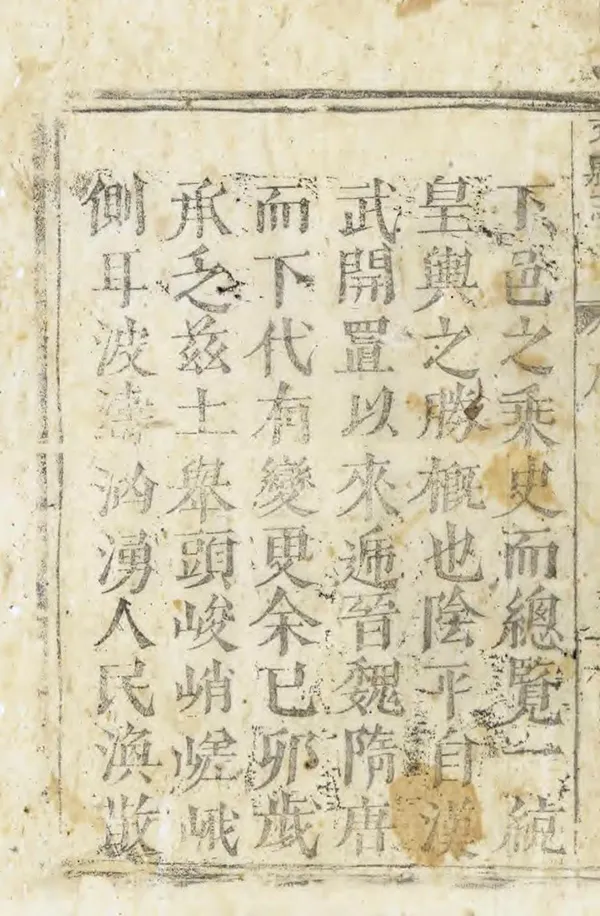 下邑之乘史而總覽一統
皇輿之勝概也陰平自漢
武開置以來遞晉魏隋唐
而下代有變更余已卯歲
承乏茲土舉頭峻峭嵯峨
側耳波濤洶湧人民渙散